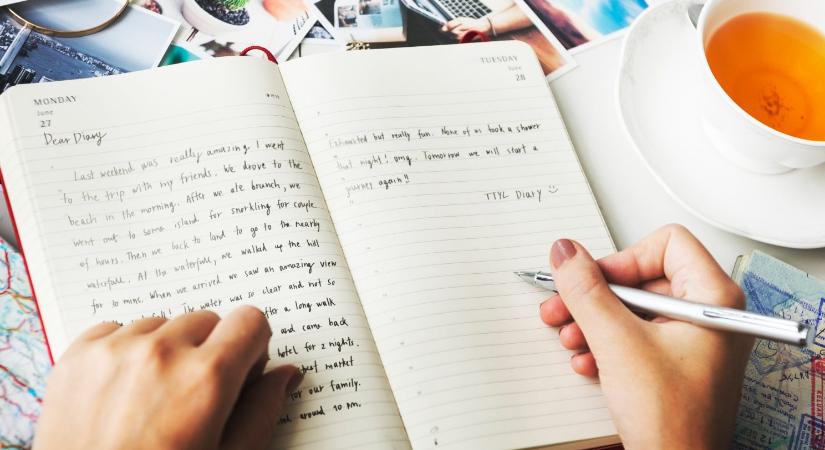 MONDAY
June
27
Dear Diary
Last weekend was really amazing. I went
To the trip with my friends. We drove to the
beach in the morning. After we ate brunch, we
went out to some island for snorkling for couple
of hours. Then we back to land to go to the nearby
waterfall. At the waterfall, we walked up the hill
for 30 mins. When we arrived we saw an amazing view
The water was so clear and not so
after a long walk
and came back
hotel for 2 nights.
market
for our family.
around 10 pm.
TUESDAY
June
28
Exhausted but really fun. None of us took a shower
that night! omg. Tomorrow we will start a
journey again!!
TTYL Diary